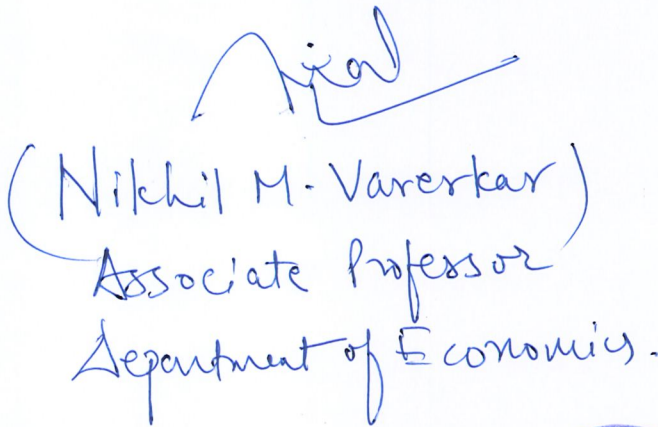 (Nikhil M. Varerkar)
Associate Professor
Department of Economics.